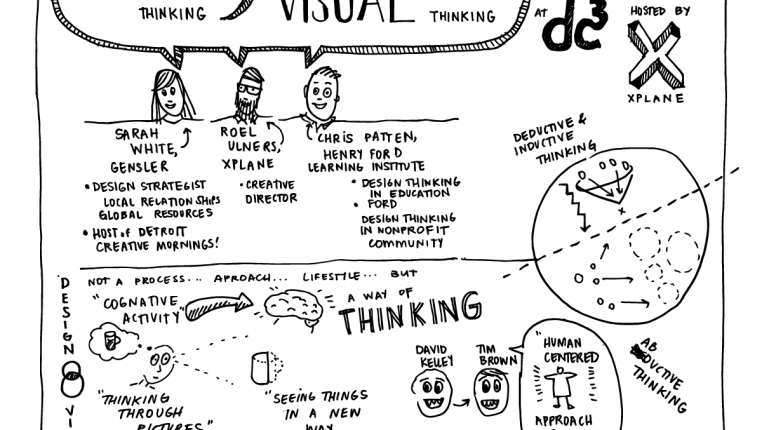 THINKING
VISUAL
THINKING
AT
dc3
HOSTED BY
X
XPLANE
SARAH
WHITE,
GENSLER
• DESIGN STRATEGIST
LOCAL RELATIONSHIPS
GLOBAL RESOURCES
• HOST of DETROIT
CREATIVE MORNINGS!
ROEL
ULNERS,
XPLANE
• CREATIVE
DIRECTOR
CHRIS PATTEN,
HENRY FORD
LEARNING INSTITUTE
• DESIGN THINKING
IN EDUCATION
• FORD
DESIGN THINKING
IN NONPROFIT
COMMUNITY
DEDUCTIVE &
INDUCTIVE
THINKING
NOT A PROCESS... APROACH... LIFESTYLE... BUT
"COGNATIVE
ACTIVITY"
A WAY OF
THINKING
DESIGN
VI
"THINKING
THROUGH
PICTURES"
"SEEING THINGS
IN A NEW
WAY
DAVID
KELLEY
TIM
BROWN
"HUMAN
CENTERED
APPROACH
AB
DUCTIVE
THINKING